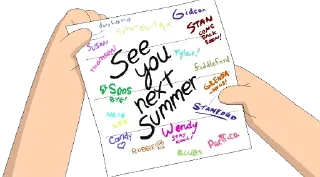 Gideon
SUSAN
STAN
COME
BACK
SOON!
THOMPSON
See
you
next
Summer
Tyler!
Fiddleford
Soos
BYE!
GRENDA
STANFORD
Candy
Wendy
STAY COOL!
ROBBIE
BLUBS
Pacifica